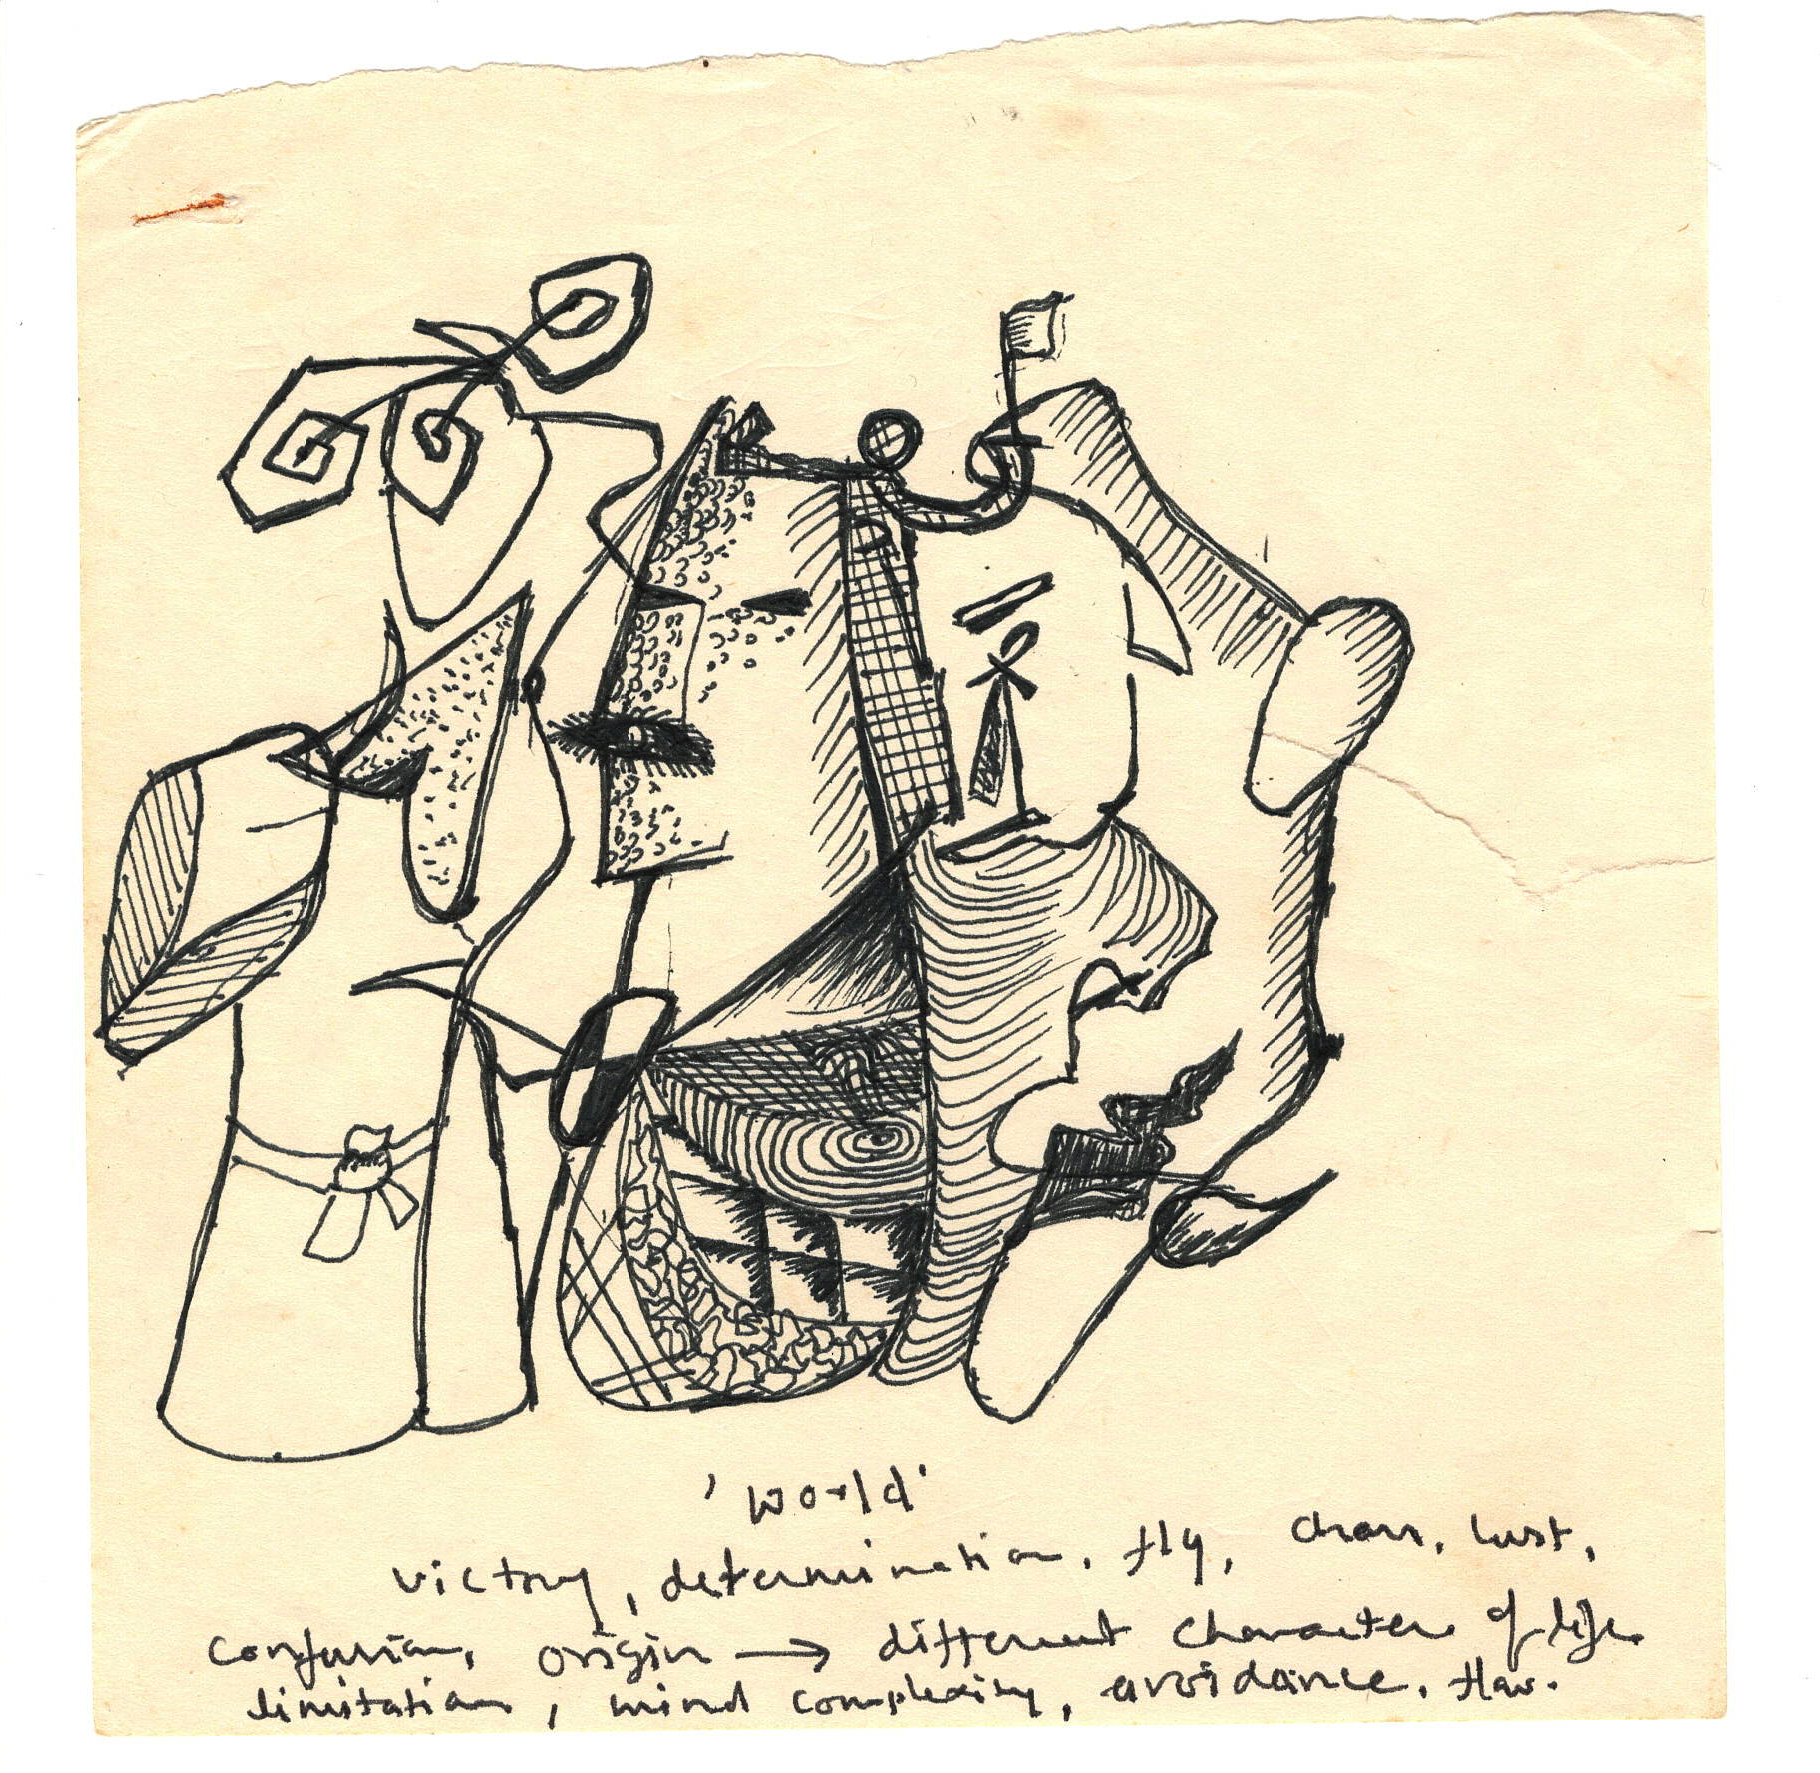 'world'
victory, determination, fly, chaos, lust,
confusion, origin → different character of life
limitation, mind complexity, avoidance, flaw.